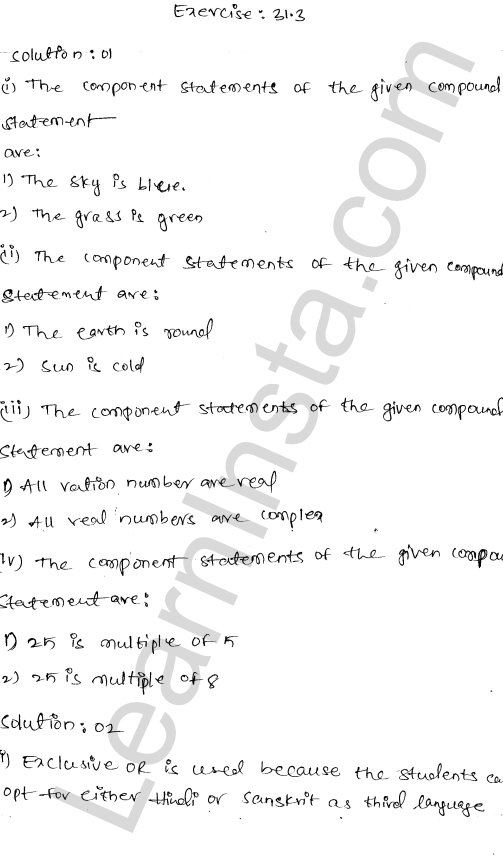 Exercise: 31.3
Solution: 01
(i) The component statements of the given compound
statement
are:
1) The sky is blue.
2) The grass is green
(ii) The component statements of the given compound
statement are:
1) The earth is round
2) Sun is cold
(iii) The component statements of the given compound
statement are:
1) All ration number are real
2) All real numbers are complex
iv) The component statements of the given compou
statement are:
1) 25 is multiple of 5
2) 25 is multiple of 8
Solution: 02
i) Exclusive OR is used because the students ca
opt for either Hindi or Sanskrit as third language
LearnInsta.com